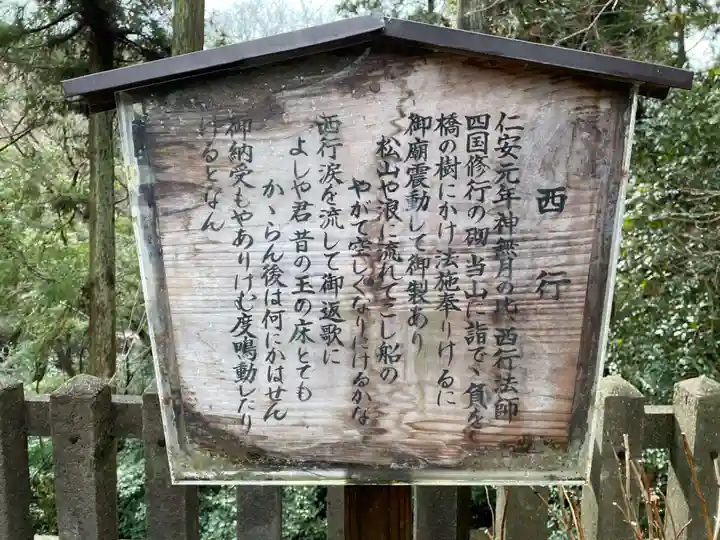 西行
仁安元年神無月の比、西行法師
四国修行の砌当山に詣で、負を
橋の樹にかけ法施奉りけるに
御廟震動して御製あり
松山や浪に流れてこし船の
やがて空しくなりにけるかな
西行涙を流して御返歌に
よしや君昔の玉の床とても
かゝらん後は何にかはせん
御納受もやありけむ度鳴動したり
けるとなん